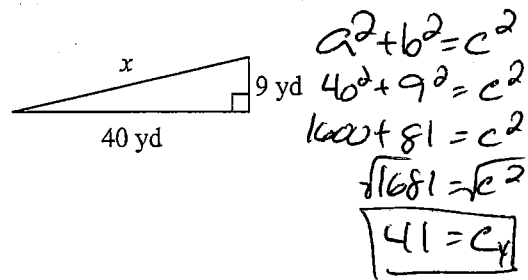 x
9 yd
40 yd
a²+b²=c²
40²+9²=c²
1600+81=c²
√1681=√c²
41=c